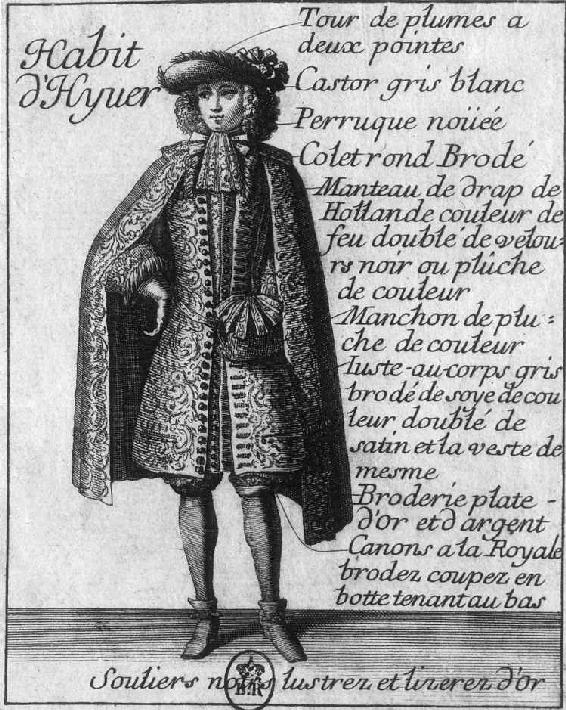 Habit
d'Hyuer
Tour de plumes a
deux pointes
Castor gris blanc
Perruque noüeé
Colet rond Brodé
Manteau de drap de
Hollande couleur de
feu doublé de velou-
rs noir ou plüche
de couleur
Manchon de plu-
che de couleur
Iuste-au-corps gris
brodé de soye de cou
leur doublé de
satin et la veste de
mesme
Broderie plate -
d'or et d argent
Canons a la Royale
brodez coupez en
botte tenant au bas
Souliers noirs lustrez et lizerez d'or